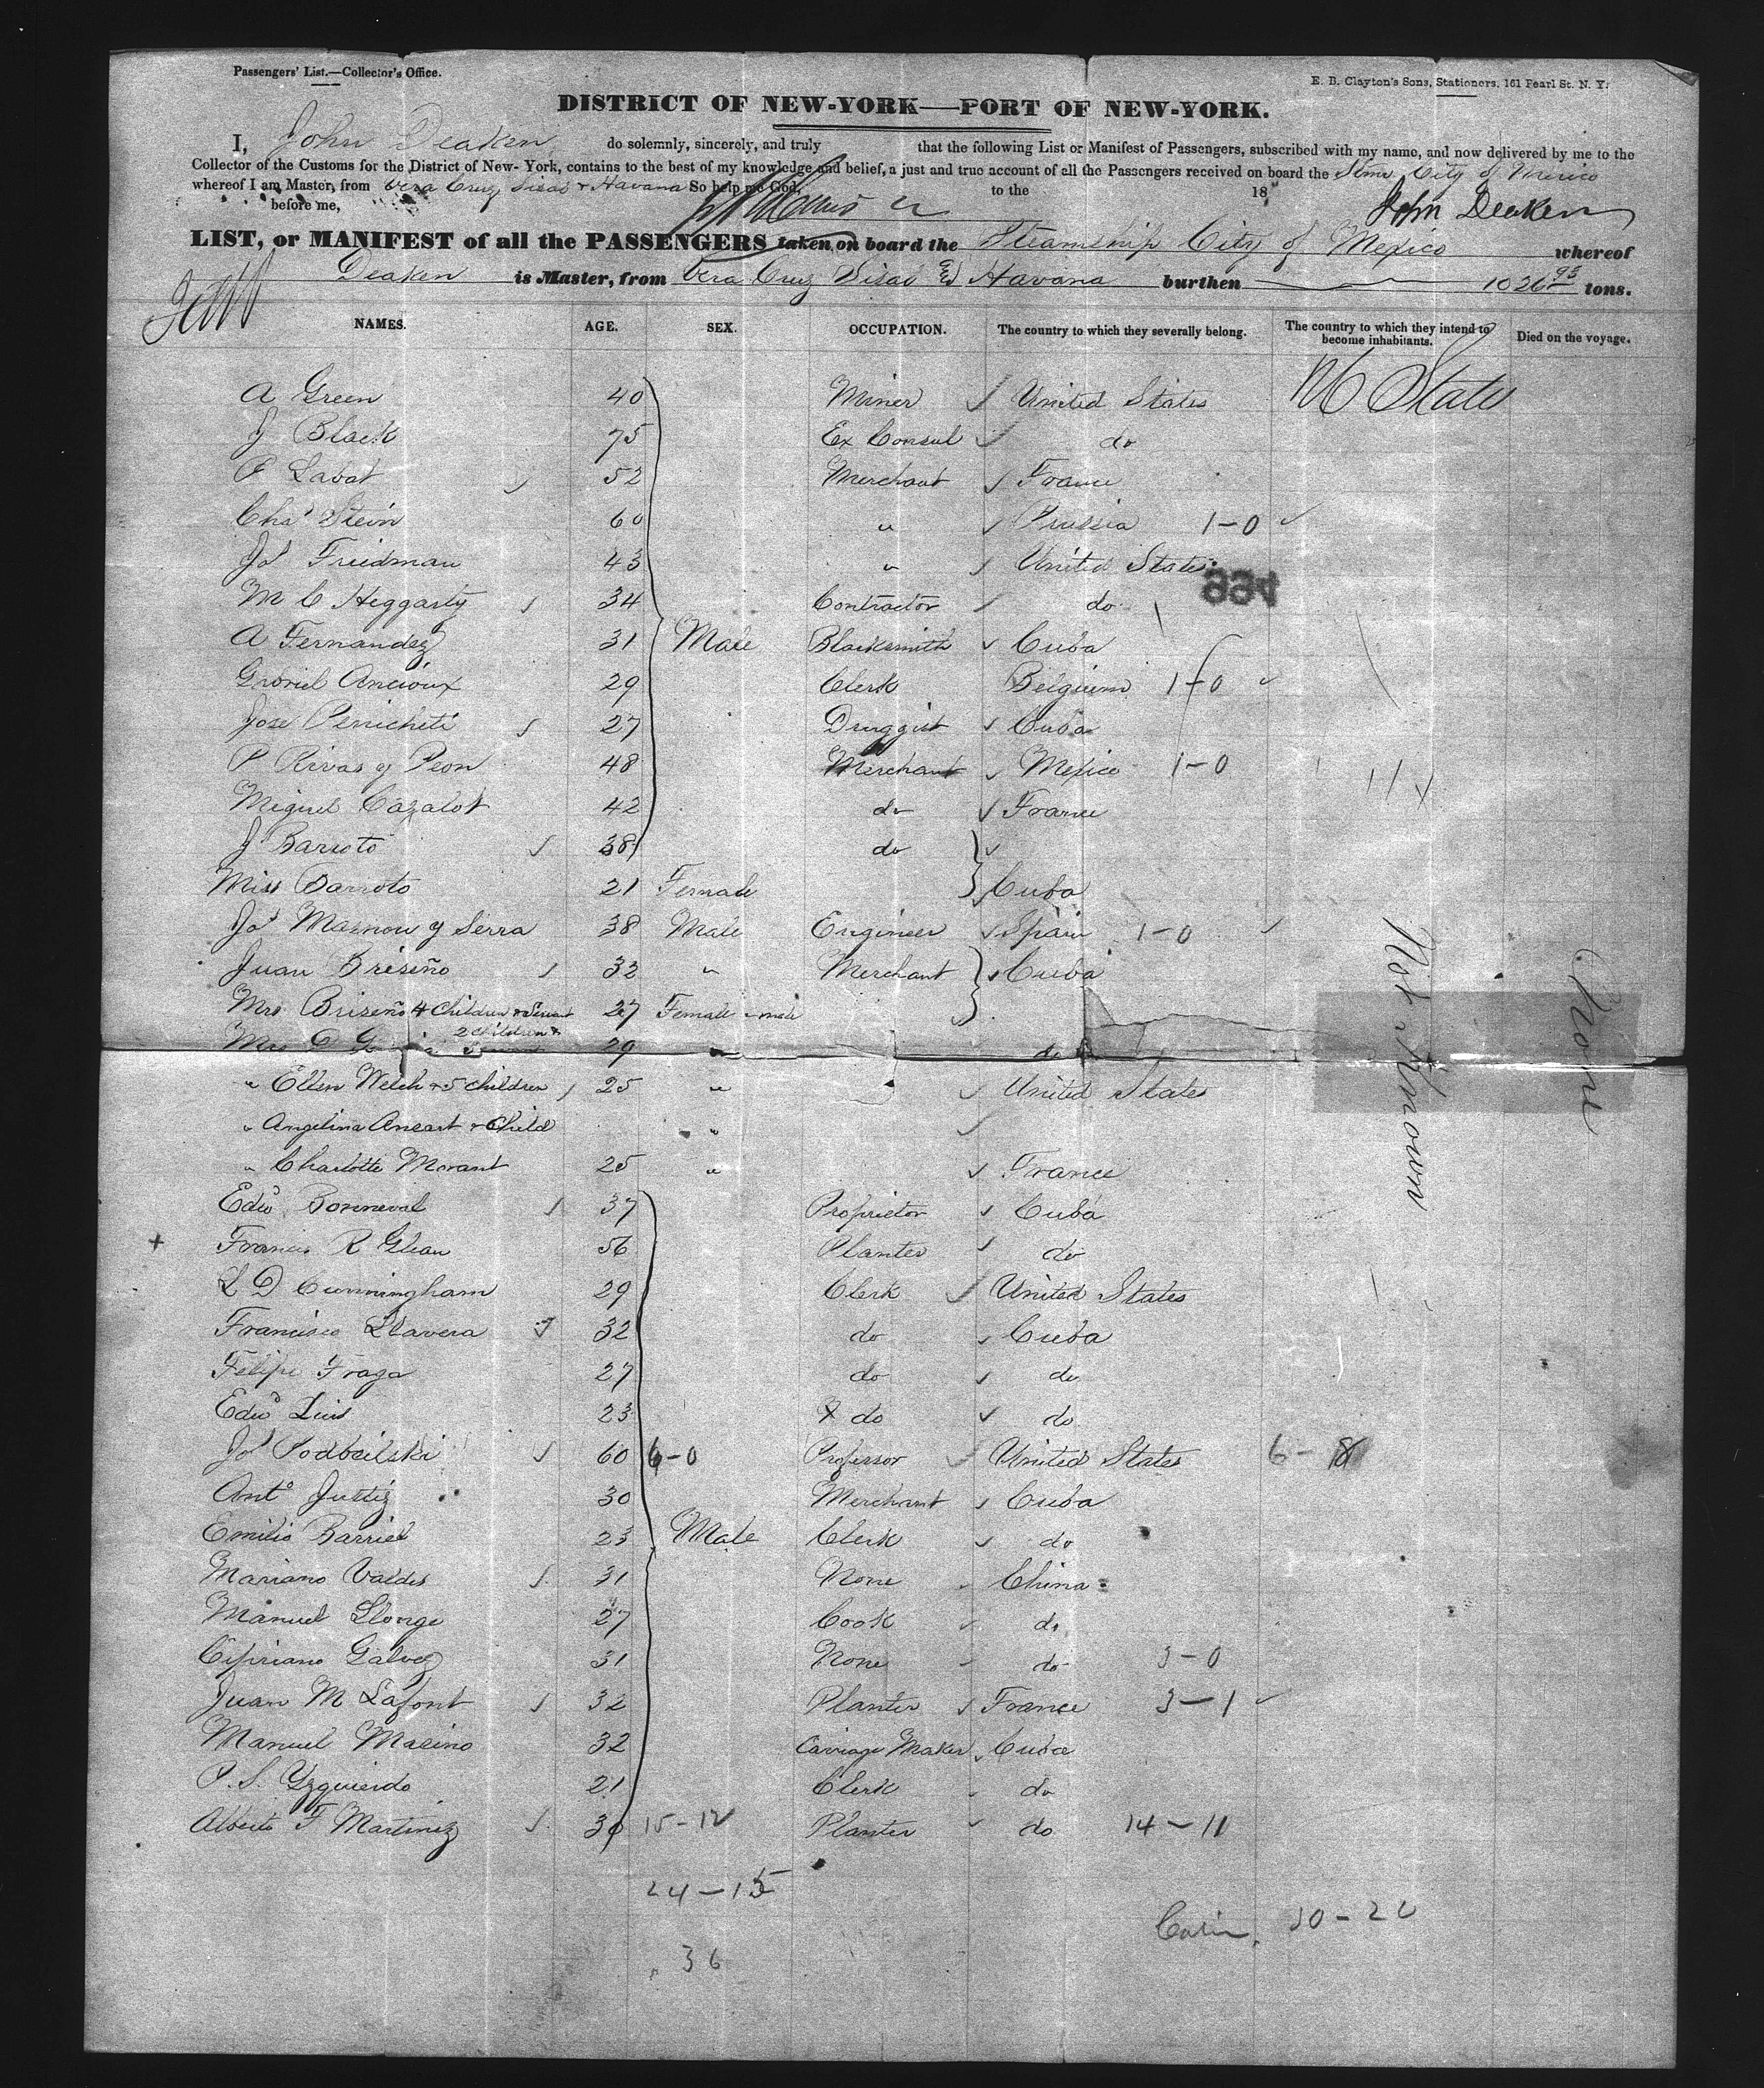 Passengers' List.—Collector's Office.
E. B. Clayton's Sons, Stationers, 161 Pearl St. N. Y.
DISTRICT OF NEW-YORK—PORT OF NEW-YORK.
I, John Deaken do solemnly, sincerely, and truly that the following List or Manifest of Passengers, subscribed with my name, and now delivered by me to the
Collector of the Customs for the District of New-York, contains to the best of my knowledge and belief, a just and true account of all the Passengers received on board the Stmr City of Mexico
whereof I am Master, from Vera Cruz Sisal & Havana So help me God. to the 18
before me, John Deaken
LIST, or MANIFEST of all the PASSENGERS taken on board the Steamship City of Mexico whereof
Deaken is Master, from Vera Cruz Sisal and Havana burthen 1026 93 tons.
NAMES. AGE. SEX. OCCUPATION. The country to which they severally belong. The country to which they intend to become inhabitants. Died on the voyage.
A Green 40 Miner United States U States
J Black 75 Ex Consul do
P Labat 52 Merchant France
Chas Stein 60 " Prussia 1-0
Jos Freidman 43 " United States
994
M C Heggarty 34 Contractor do
A Fernandez 31 Male Blacksmith Cuba
Gabriel Ancioux 29 Clerk Belgium 1-0
Jose Penicheti 27 Druggist Cuba
P Rivas y Peon 48 Merchant Mexico 1-0
Miguel Cazalot 42 do France
J Barroto 38 do
Miss Barroto 21 Female Cuba
Jos Masnou y Serra 38 Male Engineer Spain 1-0
Juan Briseño 32 " Merchant Cuba
Mrs Briseño 4 Children & Servant 27 Female & male
Mrs D 2 Children & Servant 29 " do
" Ellen Welch & 5 children 25 " United States
" Angelina Aneart & Child "
" Charlotte Morant 25 " France
Not Known
None
Edwd Bonneval 37 Proprietor Cuba
+ Francis R Glean 56 Planter do
L D Cunningham 29 Clerk United States
Francisco Llavera 32 do Cuba
Felipe Fraga 27 do do
Edwd Luis 23 do do
Jos Podbeilski 60 6-0 Professor United States 6-8
Anto Justiz 30 Merchant Cuba
Emilio Barriel 23 Male Clerk do
Mariano Valdes 31 None China
Manuel Llonge 27 Cook do
Cipriano Galvez 31 None do 3-0
Juan M Lafont 32 Planter France 3-1
Manuel Marino 32 Carriage Maker Cuba
P. S. Yzquierdo 21 Clerk do
Alberto F Martinez 30 15-12 Planter do 14-11
24-15
Cabin 10-20
36